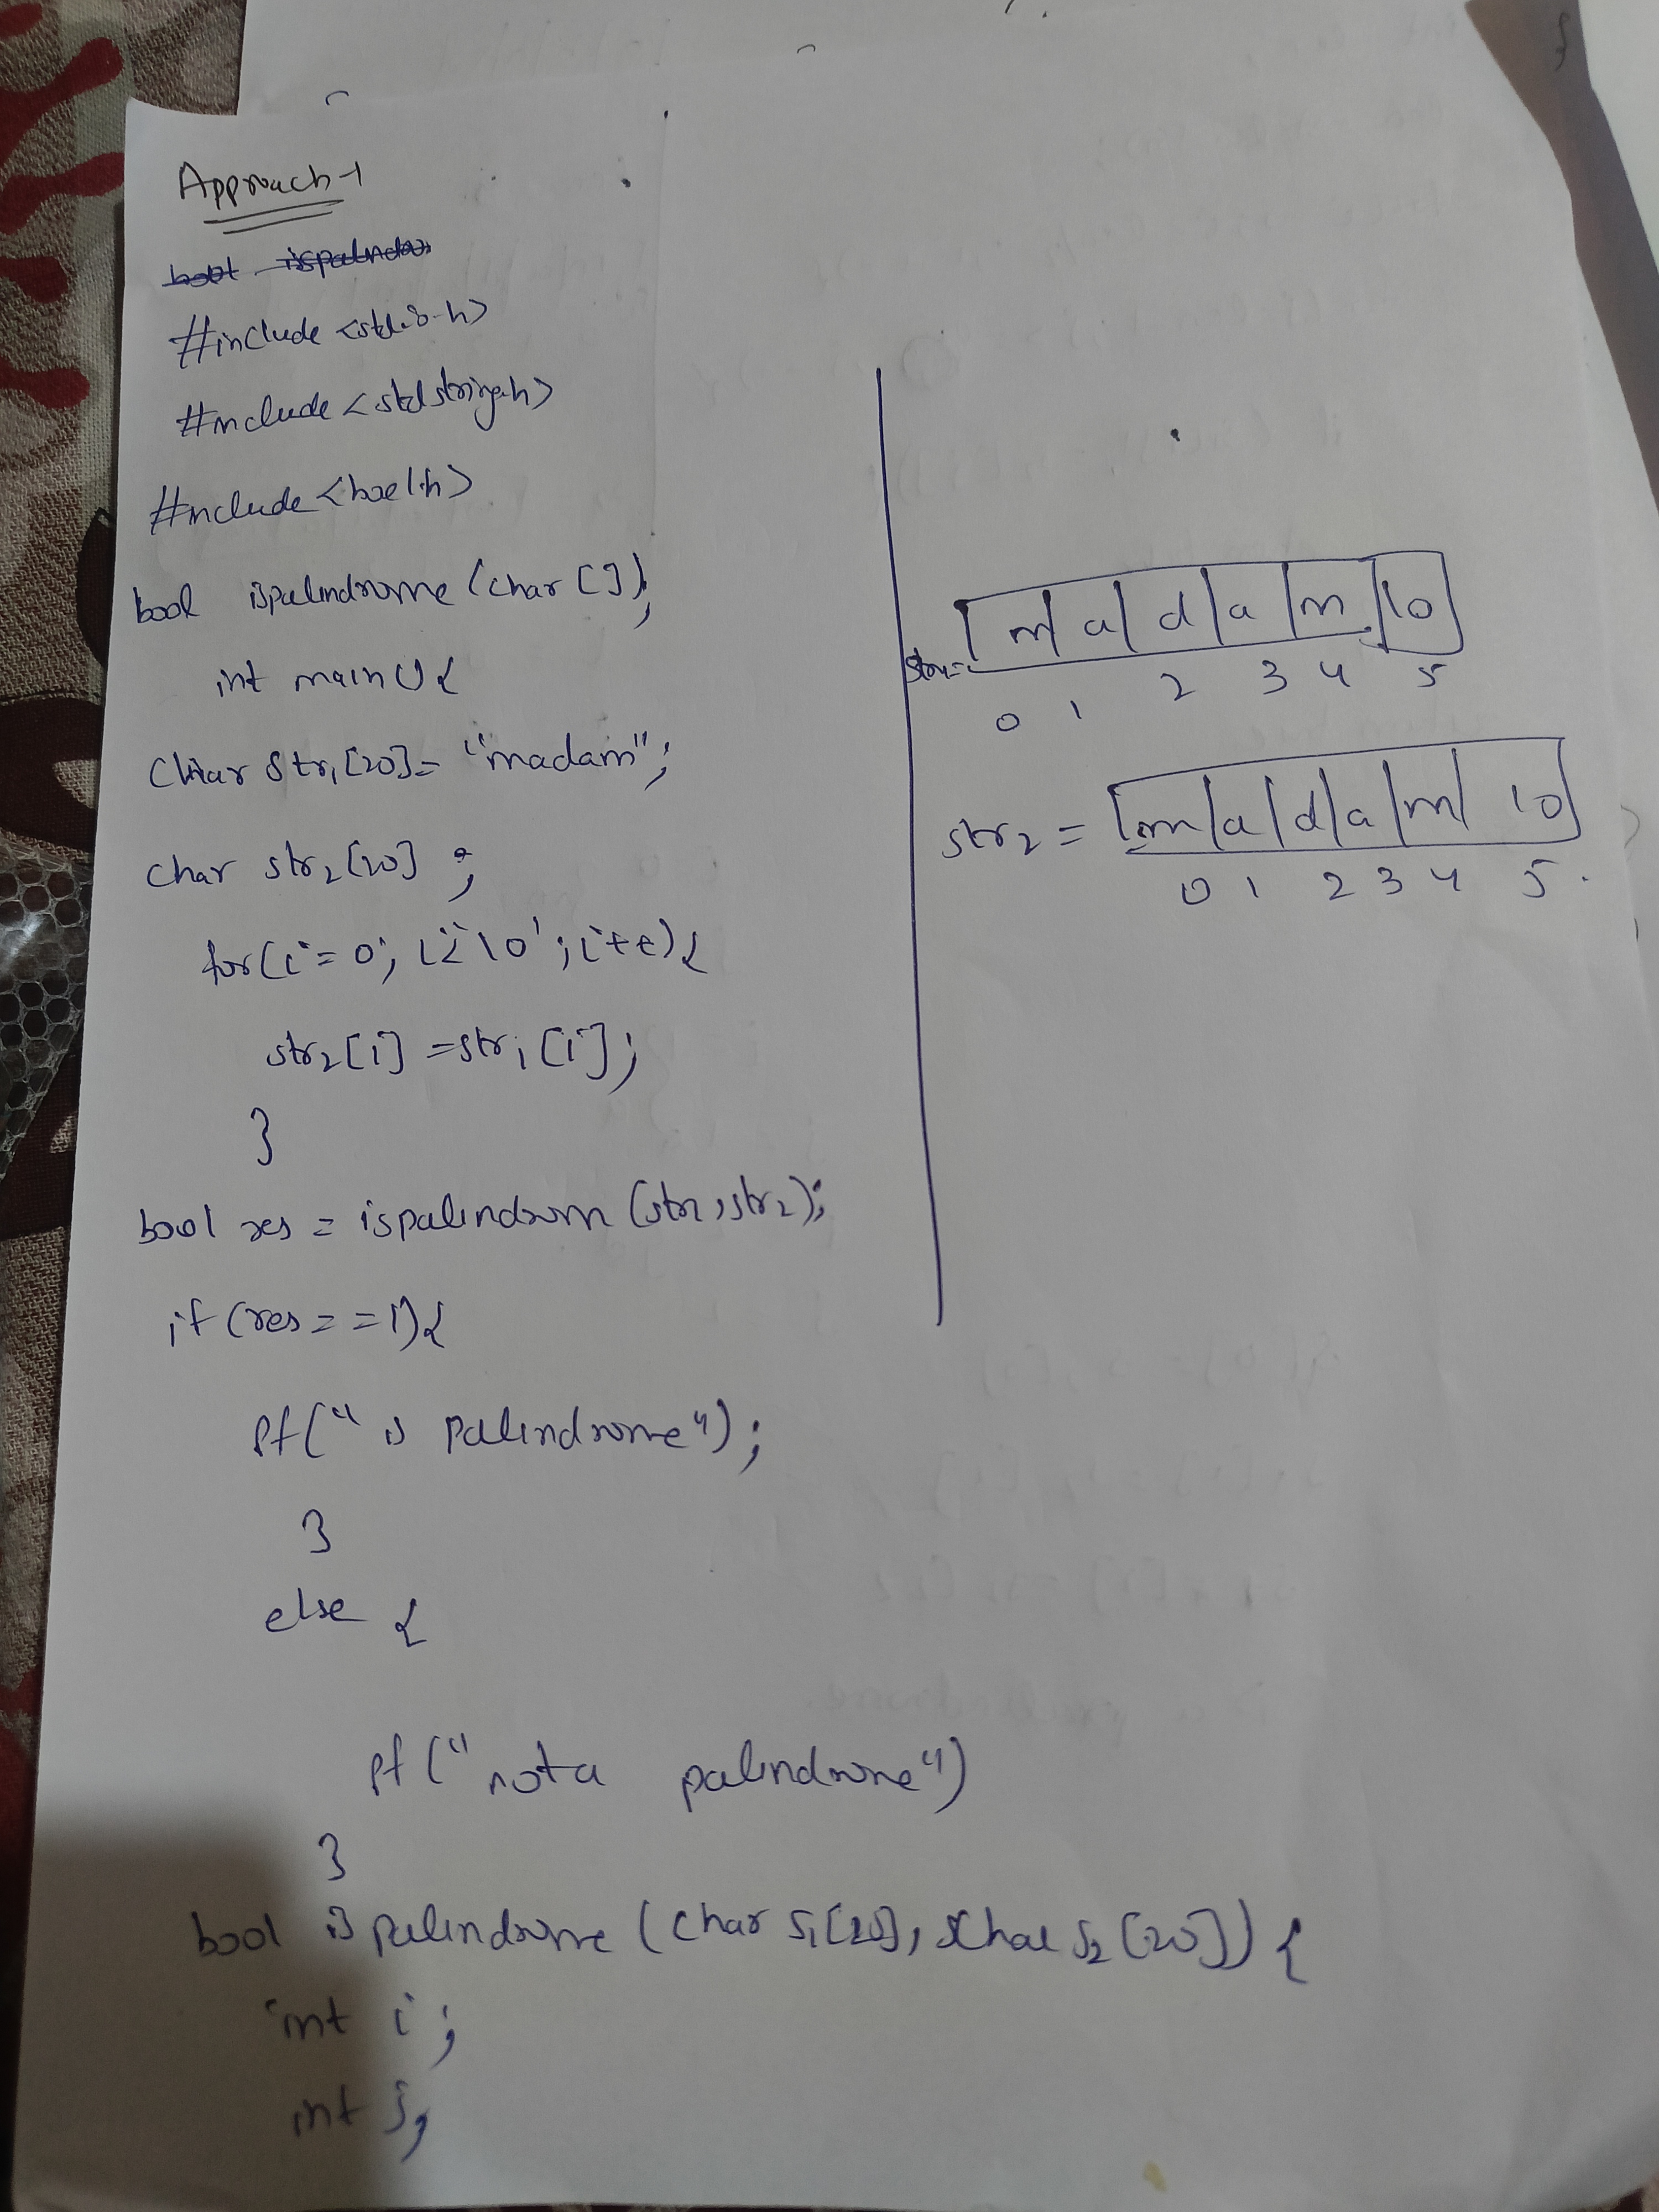 Approach-1
#include <stdio.h>
#include <stdstring.h>
#include <bool.h>
bool ispalindrome (char []);
int main () {
Char str1[20] = "madam";
char str2[20] ;
for(i=0; i<'\0'; i++) {
str2[i] = str1[i];
}
bool res = ispalindrom (str1, str2);
if (res == 1) {
Pf(" is palindrome");
}
else {
Pf ("not a palindrome")
}
bool is palindrome (char s1[20], char s2[20]) {
int i;
int j;
m a d a m \0
0 1 2 3 4 5
str2 = m a d a m \0
0 1 2 3 4 5